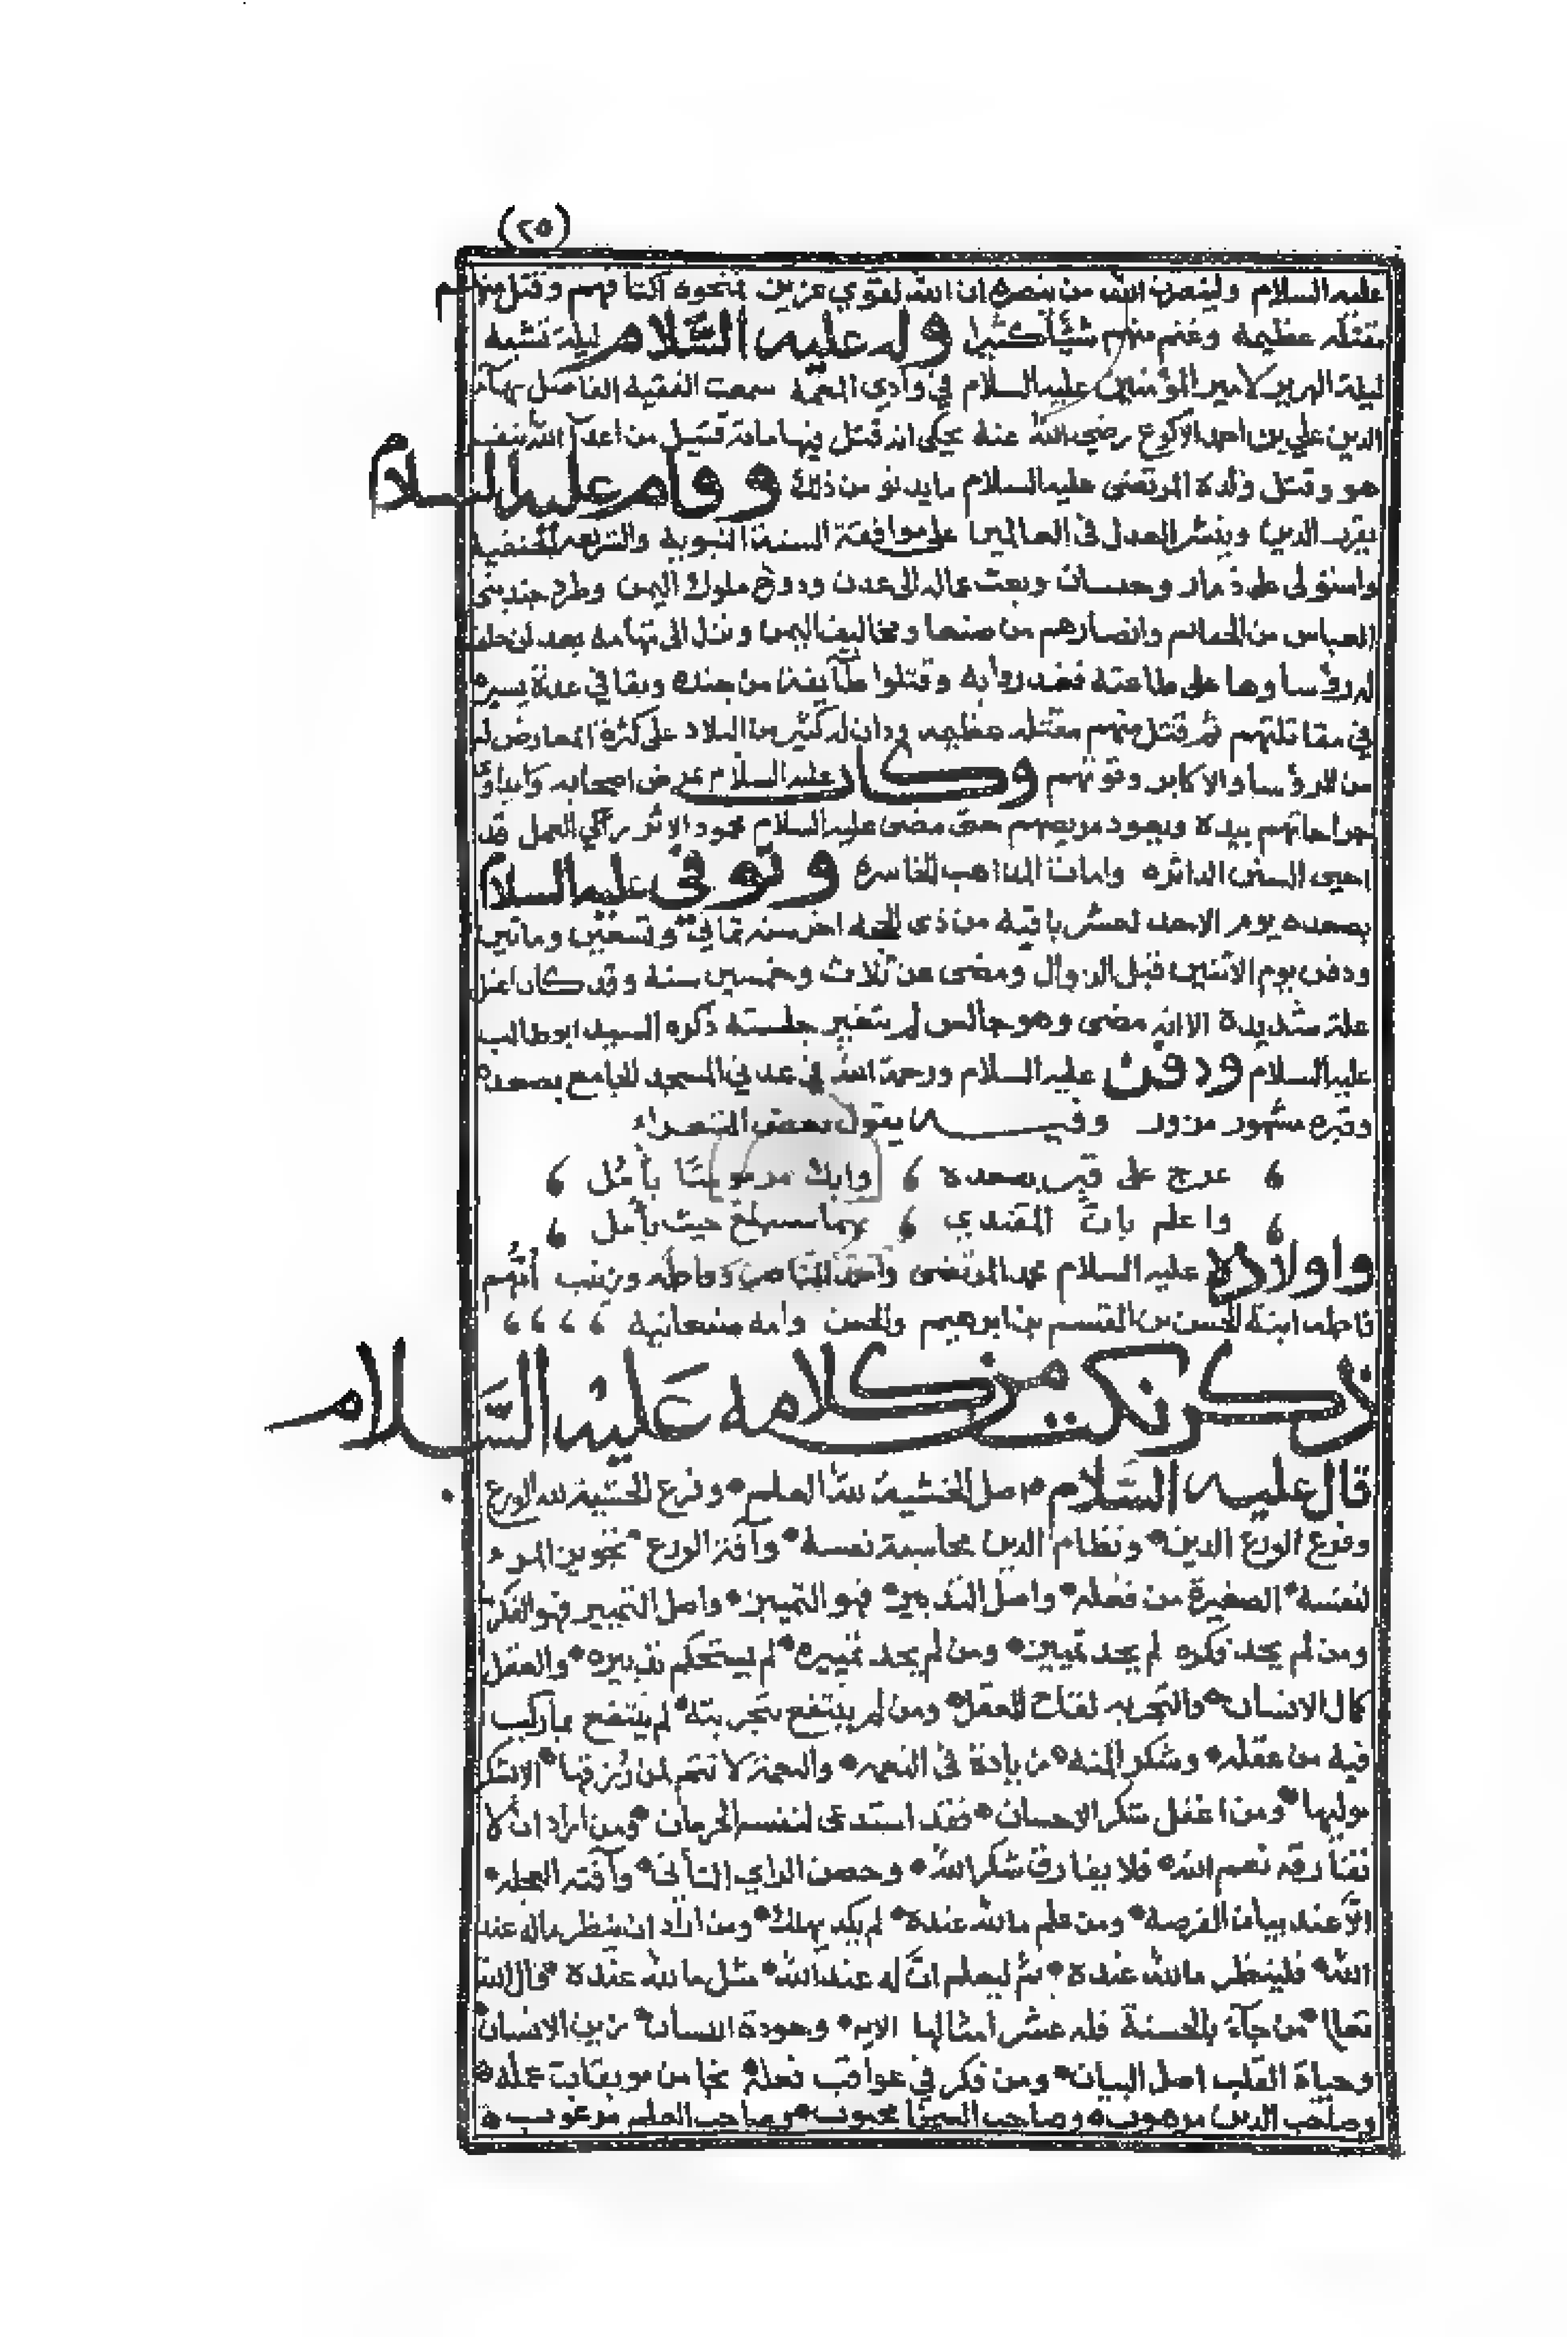 (٢٥)
عليه السلام ولينصرن الله من ينصره ان الله لقوي عزيز فمنحوه اكتافهم وقتل منهم
مقتله عظيمه وغنم منهم شيئا كثيرا وله عليه السلام ليله تشبه
ليلة الهرير لامير المؤمنين عليه السلام في وادي سمعت الفقيه الفاضل بهآ
الدين علي بن احمد الاكوع رضي الله عنه يحكي انه قتل فيها مائة قتيل من اعدآ الله بنفسه
هو وقتل ولده المرتضى عليه السلام ما يدنو من ذلك وقام عليه السلام
الدين وينشر العدل في العالمين على موافقة السنة النبويه والشريعه الحنفيه
واستولى على ذمار وجيسان وبعث عماله الى عدن ودوخ ملوك اليمن وطرد جند بني
العباس من وانصارهم من صنعا ومخاليف اليمن ونزل الى تهامه بعد ان حلف
له رؤساوها على طاعته فغدروا به وقتلوا طآيفة من جنده وبقا في عدة يسيره
في مقاتلتهم ثم قتل منهم مقتله عظيمه ودان له كثير من البلاد على كثرة المعارض له
من الرؤسا والاكابر وقوتهم وكان عليه السلام اصحابه
جراحاتهم بيده ويعود مريضهم حتى مضى عليه السلام محمود الاثر العمل قد
احيى السنن الداثره وامات المذاهب الخاسره وتوفي عليه السلام
بصعده يوم الاحد لعشر باقيه من ذى الحجه اخر سنه ثمان وتسعين ومائتين
ودفن يوم الاثنين قبل الزوال ومضى عن ثلاث وخمسين سنة وقد كان اعتل
علة شديدة الا انه مضى وهو جالس لم يتغير جلسته ذكره السيد ابو طالب
عليه السلام ودفن عليه السلام ورحمة الله في غد في المسجد الجامع بصعده
وقبره مشهور مزور وفيه يقول بعض الشعراء
، عرج على قبر بصعدة ، وابك مرموسا بأمل ،
، واعلم بان المقتدي ، بهما سيبلغ حيث يأمل ،
واولاده عليه السلام محمد المرتضى واحمد الناصر وفاطمه وزينب أمهم
فاطمه ابنة الحسن بن القسم بن ابرهيم والحسن وامه صنعانيه ، ، ، ،
ذكر نكت من كلامه عليه السلام
قال عليه السلام اصل الخشية لله العلم وفرع الخشية لله الورع
وفرع الورع الدين ونظام الدين محاسبة نفسه وآفة الورع تجويز المرء
لنفسه الصغيرة من فعله واصل التدبير فهو التمييز واصل التمييز فهو الفكر
ومن لم يجد فكره لم يجد تمييزه ومن لم يجد تمييزه لم يستحكم تدبيره والعقل
كمال الانسان والتجربه لقاح العقل ومن لم ينتفع بتجربته لم ينتفع بما ركب
فيه من عقله وشكر المنة زيادة في النعمه والنعمة لا تتم لمن رزقها الا بشكر
موليها ومن اغفل شكر الاحسان فقد استدعى لنفسه الحرمان ومن اراد ان لا
تفارقه نعم الله فلا يفارق شكر الله وحصن الراي التأني وآفته العجله
الا عند بيان الفرصة ومن علم ما لله عنده لم يكد يهلك ومن اراد ان ينظر ماله عند
الله فلينظر ما لله عنده ثم ليعلم ان له عند الله مثل ما لله عنده قال الله
تعالى من جآء بالحسنة فله عشر امثالها الايه وجودة اللسان زين الانسان
وحياة القلب اصل البيان ومن فكر في عواقب فعله نجا من موبقات عمله
وصاحب الدين مرهوب وصاحب السخا محبوب وصاحب العلم مرغوب